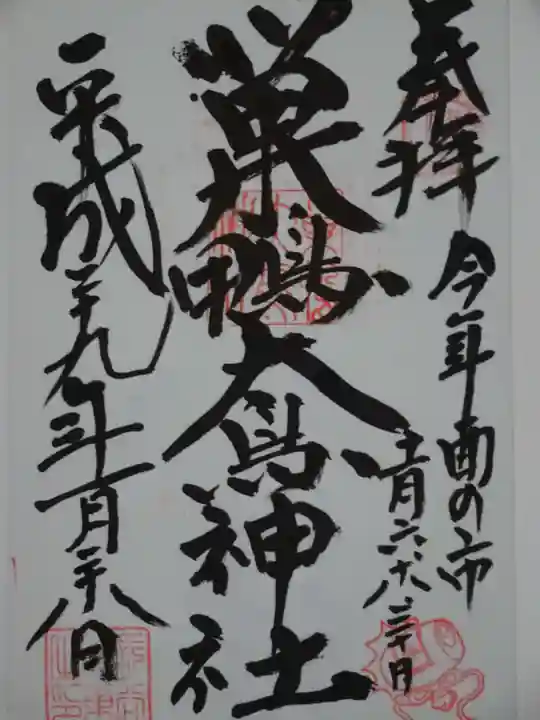 奉拝
今年酉の市
十一月六・十八・三十日
巣鴨大鳥神社
平成二十九年一月二十八日